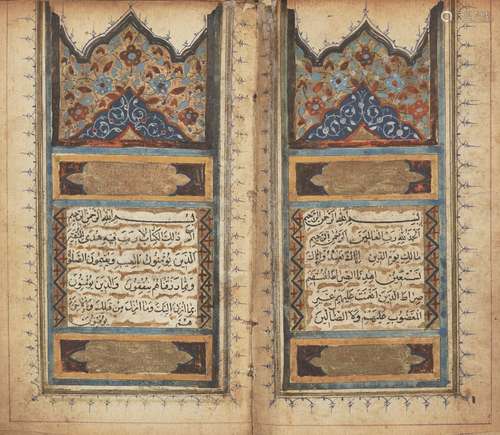 بسم الله الرحمن الرحيم
الحمد لله رب العالمين الرحمن الرحيم
مالك يوم الدين اياك نعبد واياك
نستعين اهدنا الصراط المستقيم
صراط الذين انعمت عليهم غير
المغضوب عليهم ولا الضالين
بسم الله الرحمن الرحيم
الم ذلك الكتاب لا ريب فيه هدى للمتقين
الذين يؤمنون بالغيب ويقيمون الصلوة
ومما رزقناهم ينفقون والذين يؤمنون
بما انزل اليك وما انزل من قبلك وبالاخرة
هم يوقنون